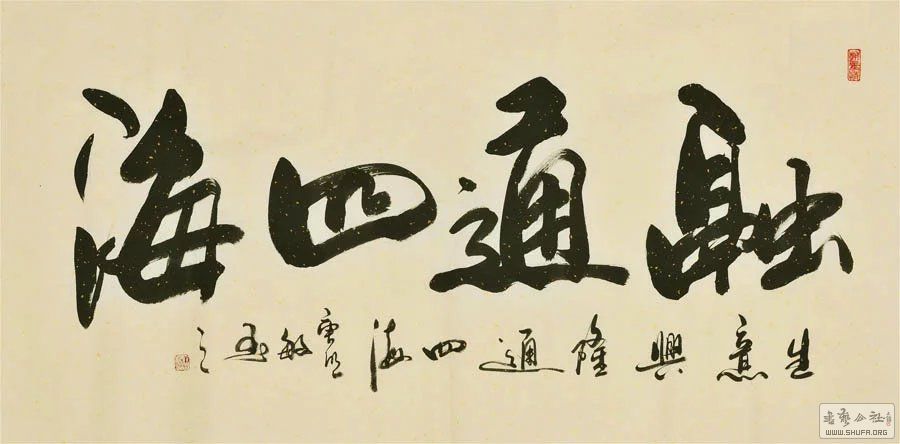 融通四海
生意興隆通四海
書藝公社
WWW.SHUFA.ORG